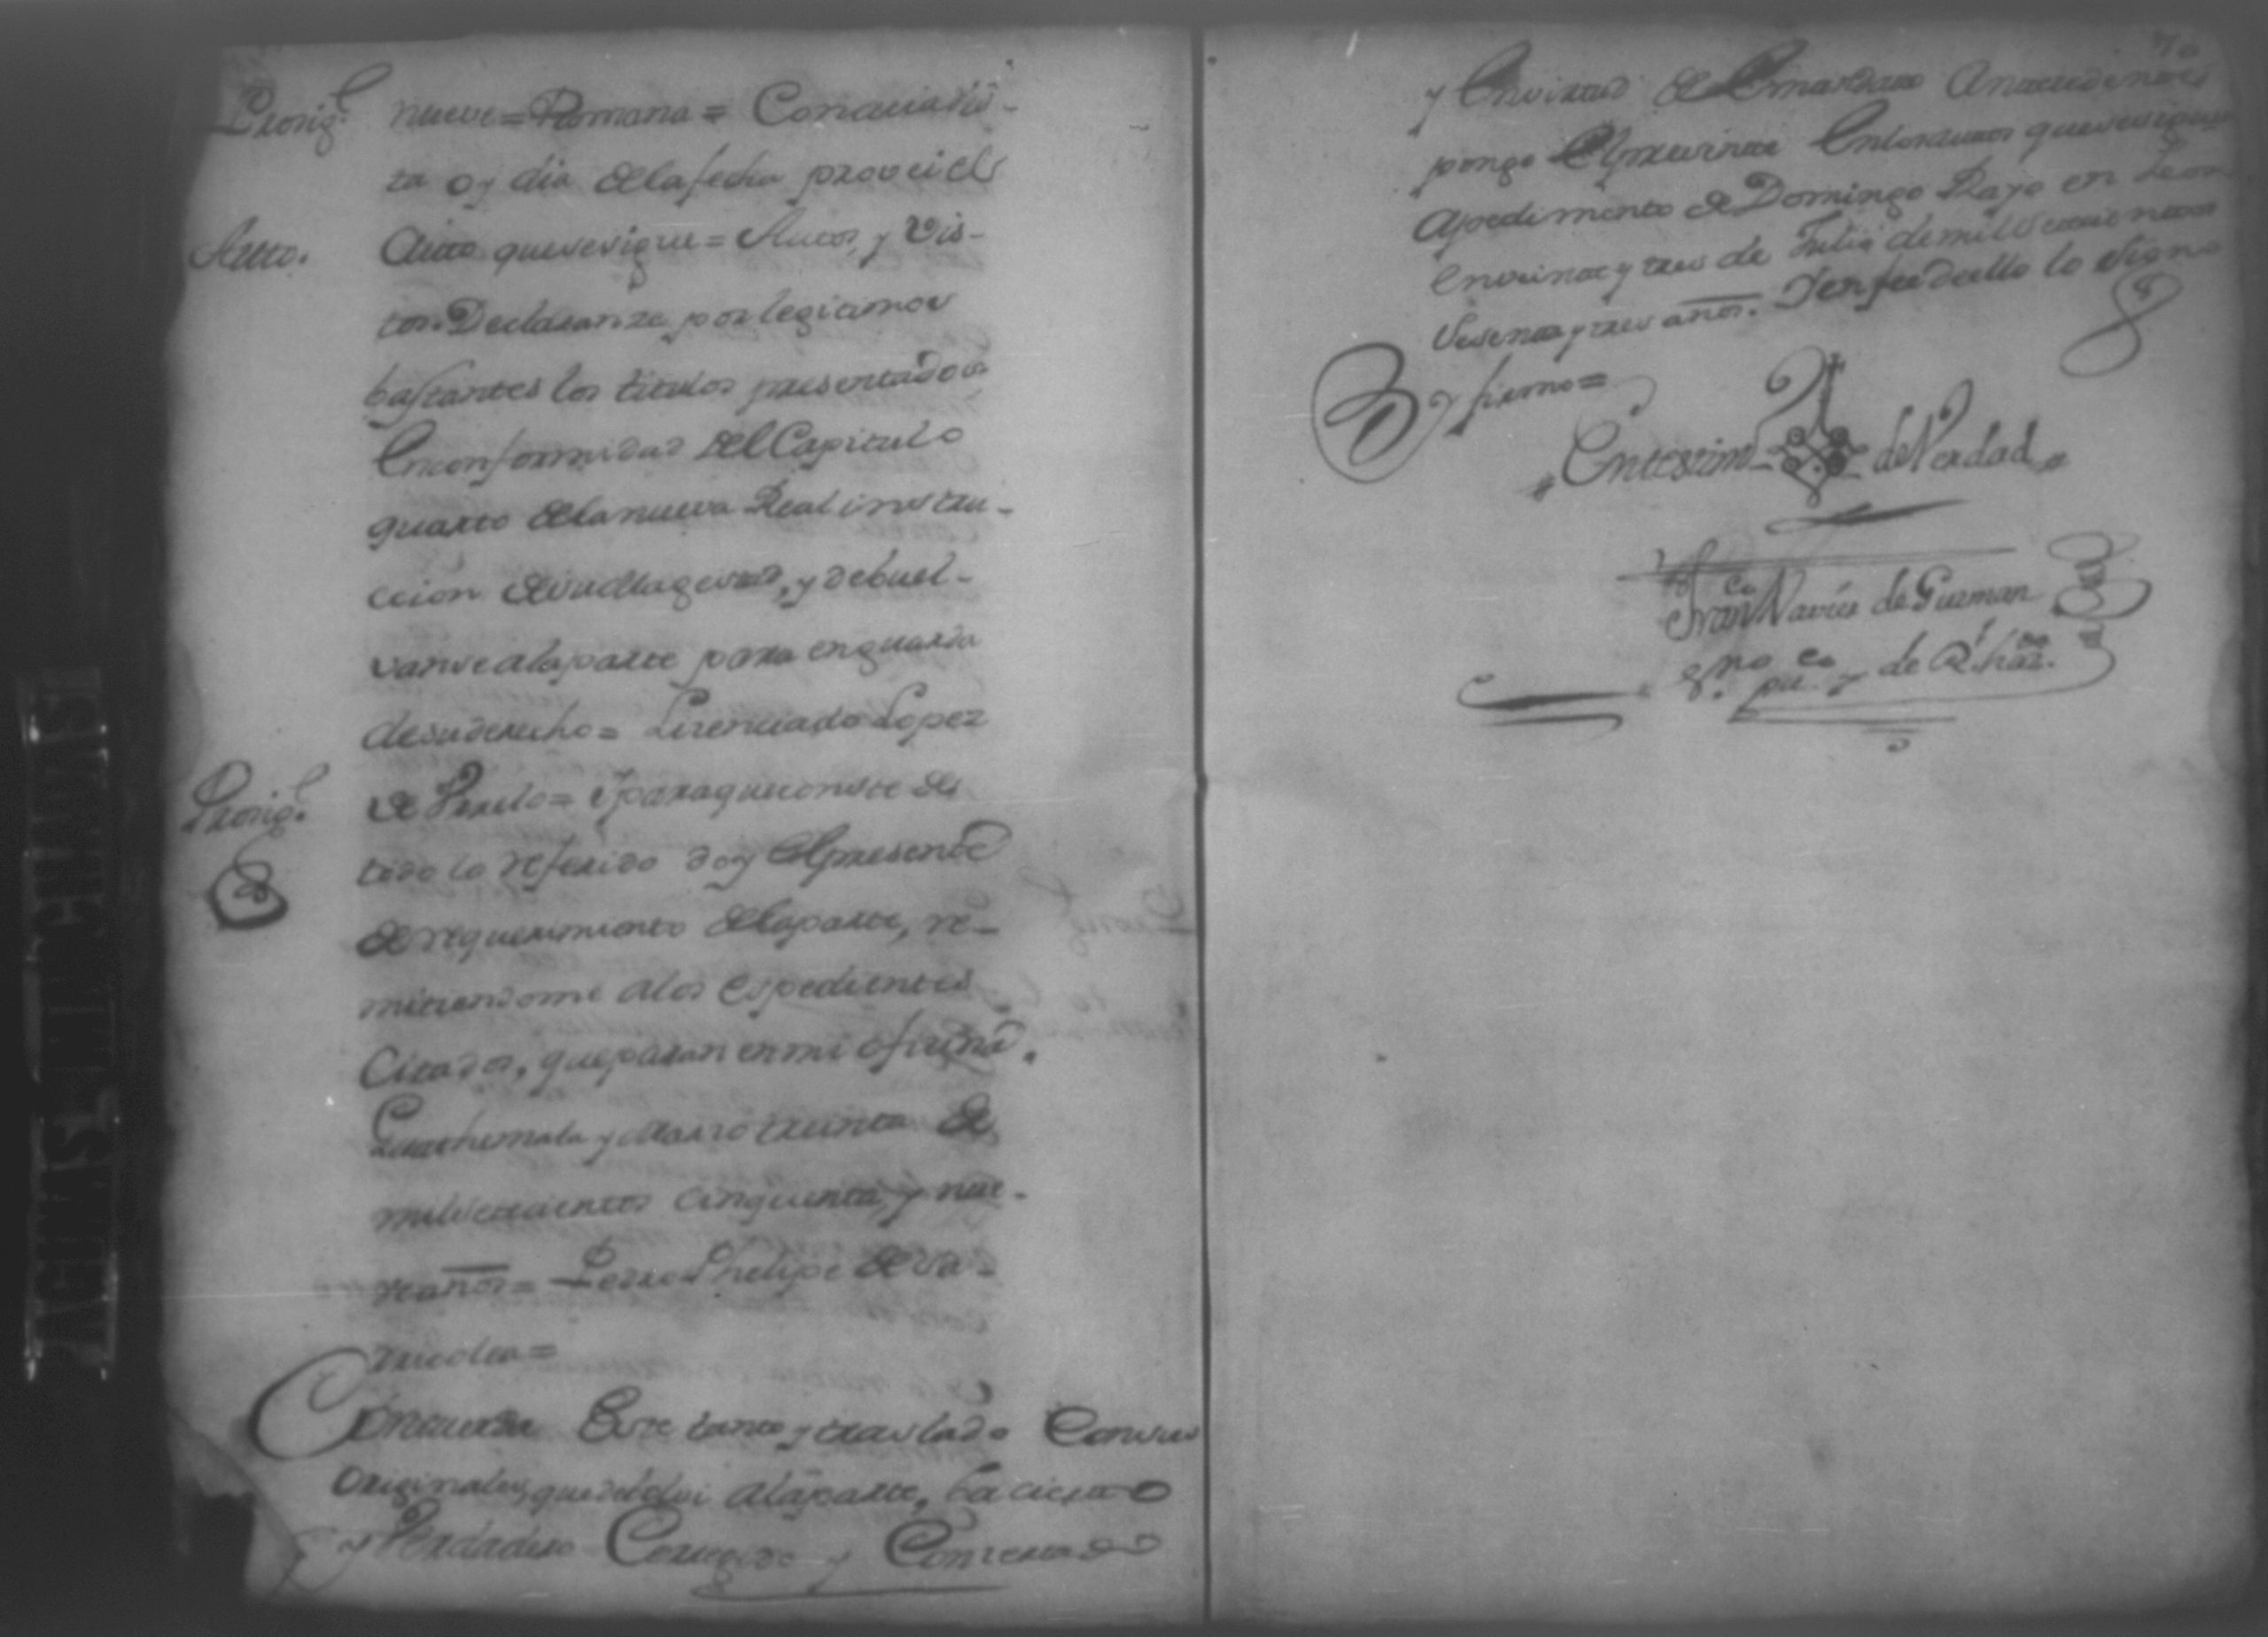 Prosig.e nueve = Romana = Con cuia vis-
ta oy dia de la fecha provei el
Auto. Auto que se sigue = Autos, y vis-
tos. Declaranse por legitimos
bastantes los titulos presentados
En conformidad del Capitulo
quarto de la nueva Real instru-
ccion de su Magestad, y debuel-
vanse a la parte para en guarda
de su derecho = Lizenciado Lopez
Prosig.e de Urrelo = Y para que conste de
todo lo referido doy el presente
de requerimiento de la parte, re-
mitiendome a los espedientes
Citados, que paran en mi ofizina.
Guathemala y Marzo treinta de
mil setecientos cinquenta, y nue-
ve años = Pedro Phelipe de Va-
Concuerda Este tanto y traslado Con sus
Originales, que debolvi a la parte, ba cierto
y Verdadero Corregido y Concertado
70
y En virtud de lo mandado Antecedente
pongo El presente En los autos que se siguen
A pedimento de Domingo Rayo en Leon
en veinte y tres de Julio de mil Setecientos
Sesenta y tres años. Y en fee de ello lo signo
y firmo =
Entestim.o de Verdad
Fran.co Xavier de Guzman
S.no pu.co y de R.l haz.da